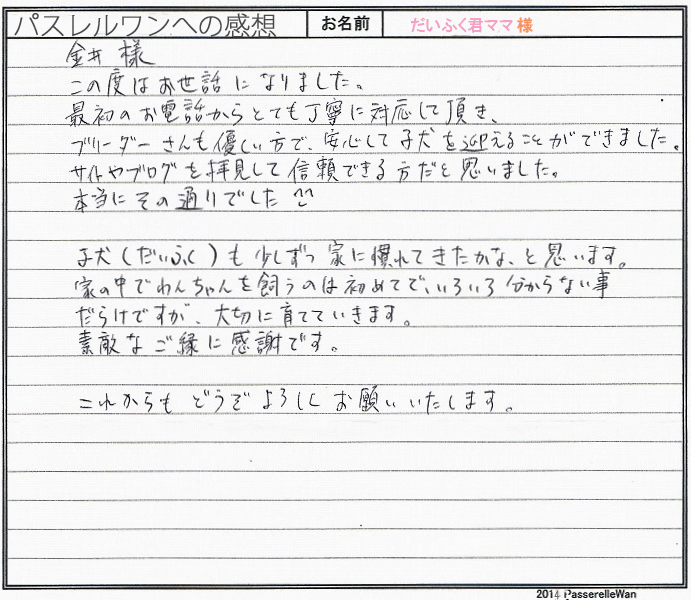 パスレルワンへの感想 お名前 だいふく君ママ 様
金井 様
この度はお世話になりました。
最初のお電話からとても丁寧に対応して頂き、
ブリーダーさんも優しい方で、安心して子犬を迎えることができました。
サイトやブログを拝見して信頼できる方だと思いました。
本当にその通りでした ^^
子犬(だいふく)も少しずつ家に慣れてきたかな、と思います。
家の中でわんちゃんを飼うのは初めてで、いろいろ分からない事
だらけですが、大切に育てていきます。
素敵なご縁に感謝です。
これからもどうぞよろしくお願いいたします。
2014 PasserelleWan